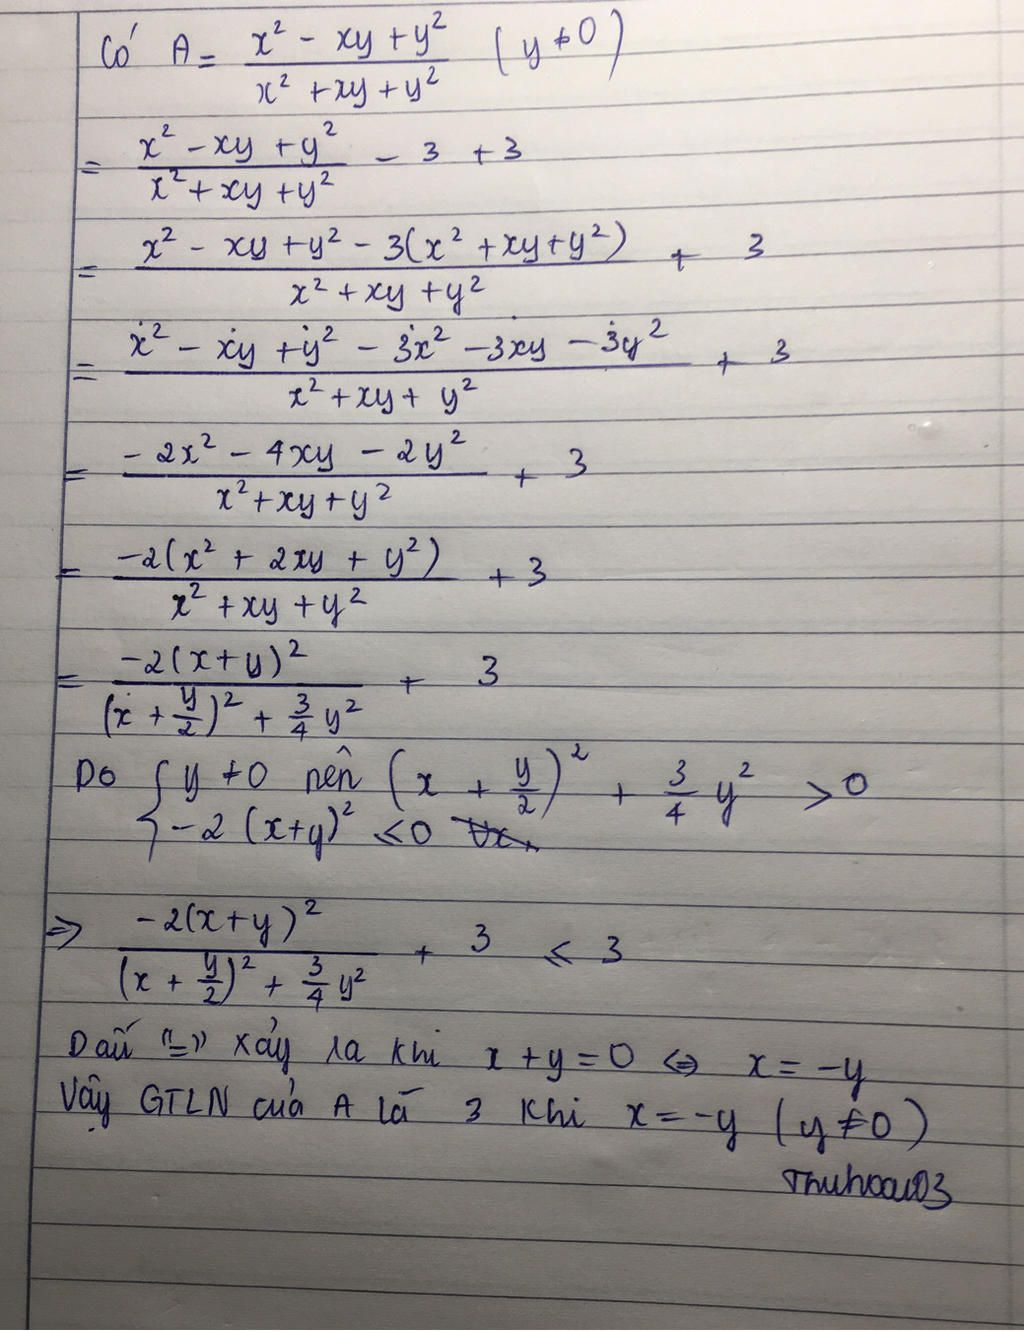 Có A = \frac{x² - xy + y²}{x² + xy + y²} (y ≠ 0)
= \frac{x² - xy + y²}{x² + xy + y²} - 3 + 3
= \frac{x² - xy + y² - 3(x² + xy + y²)}{x² + xy + y²} + 3
= \frac{x² - xy + y² - 3x² - 3xy - 3y²}{x² + xy + y²} + 3
= \frac{-2x² - 4xy - 2y²}{x² + xy + y²} + 3
= \frac{-2(x² + 2xy + y²)}{x² + xy + y²} + 3
= \frac{-2(x+y)²}{(x + \frac{y}{2})² + \frac{3}{4}y²} + 3
Do { y ≠ 0 nên (x + \frac{y}{2})² + \frac{3}{4}y² > 0
-2(x+y)² ≤ 0
⇒ \frac{-2(x+y)²}{(x + \frac{y}{2})² + \frac{3}{4}y²} + 3 ≤ 3
Dấu "=" xảy ra khi x + y = 0 ⇔ x = -y
Vậy GTLN của A là 3 khi x = -y (y ≠ 0)